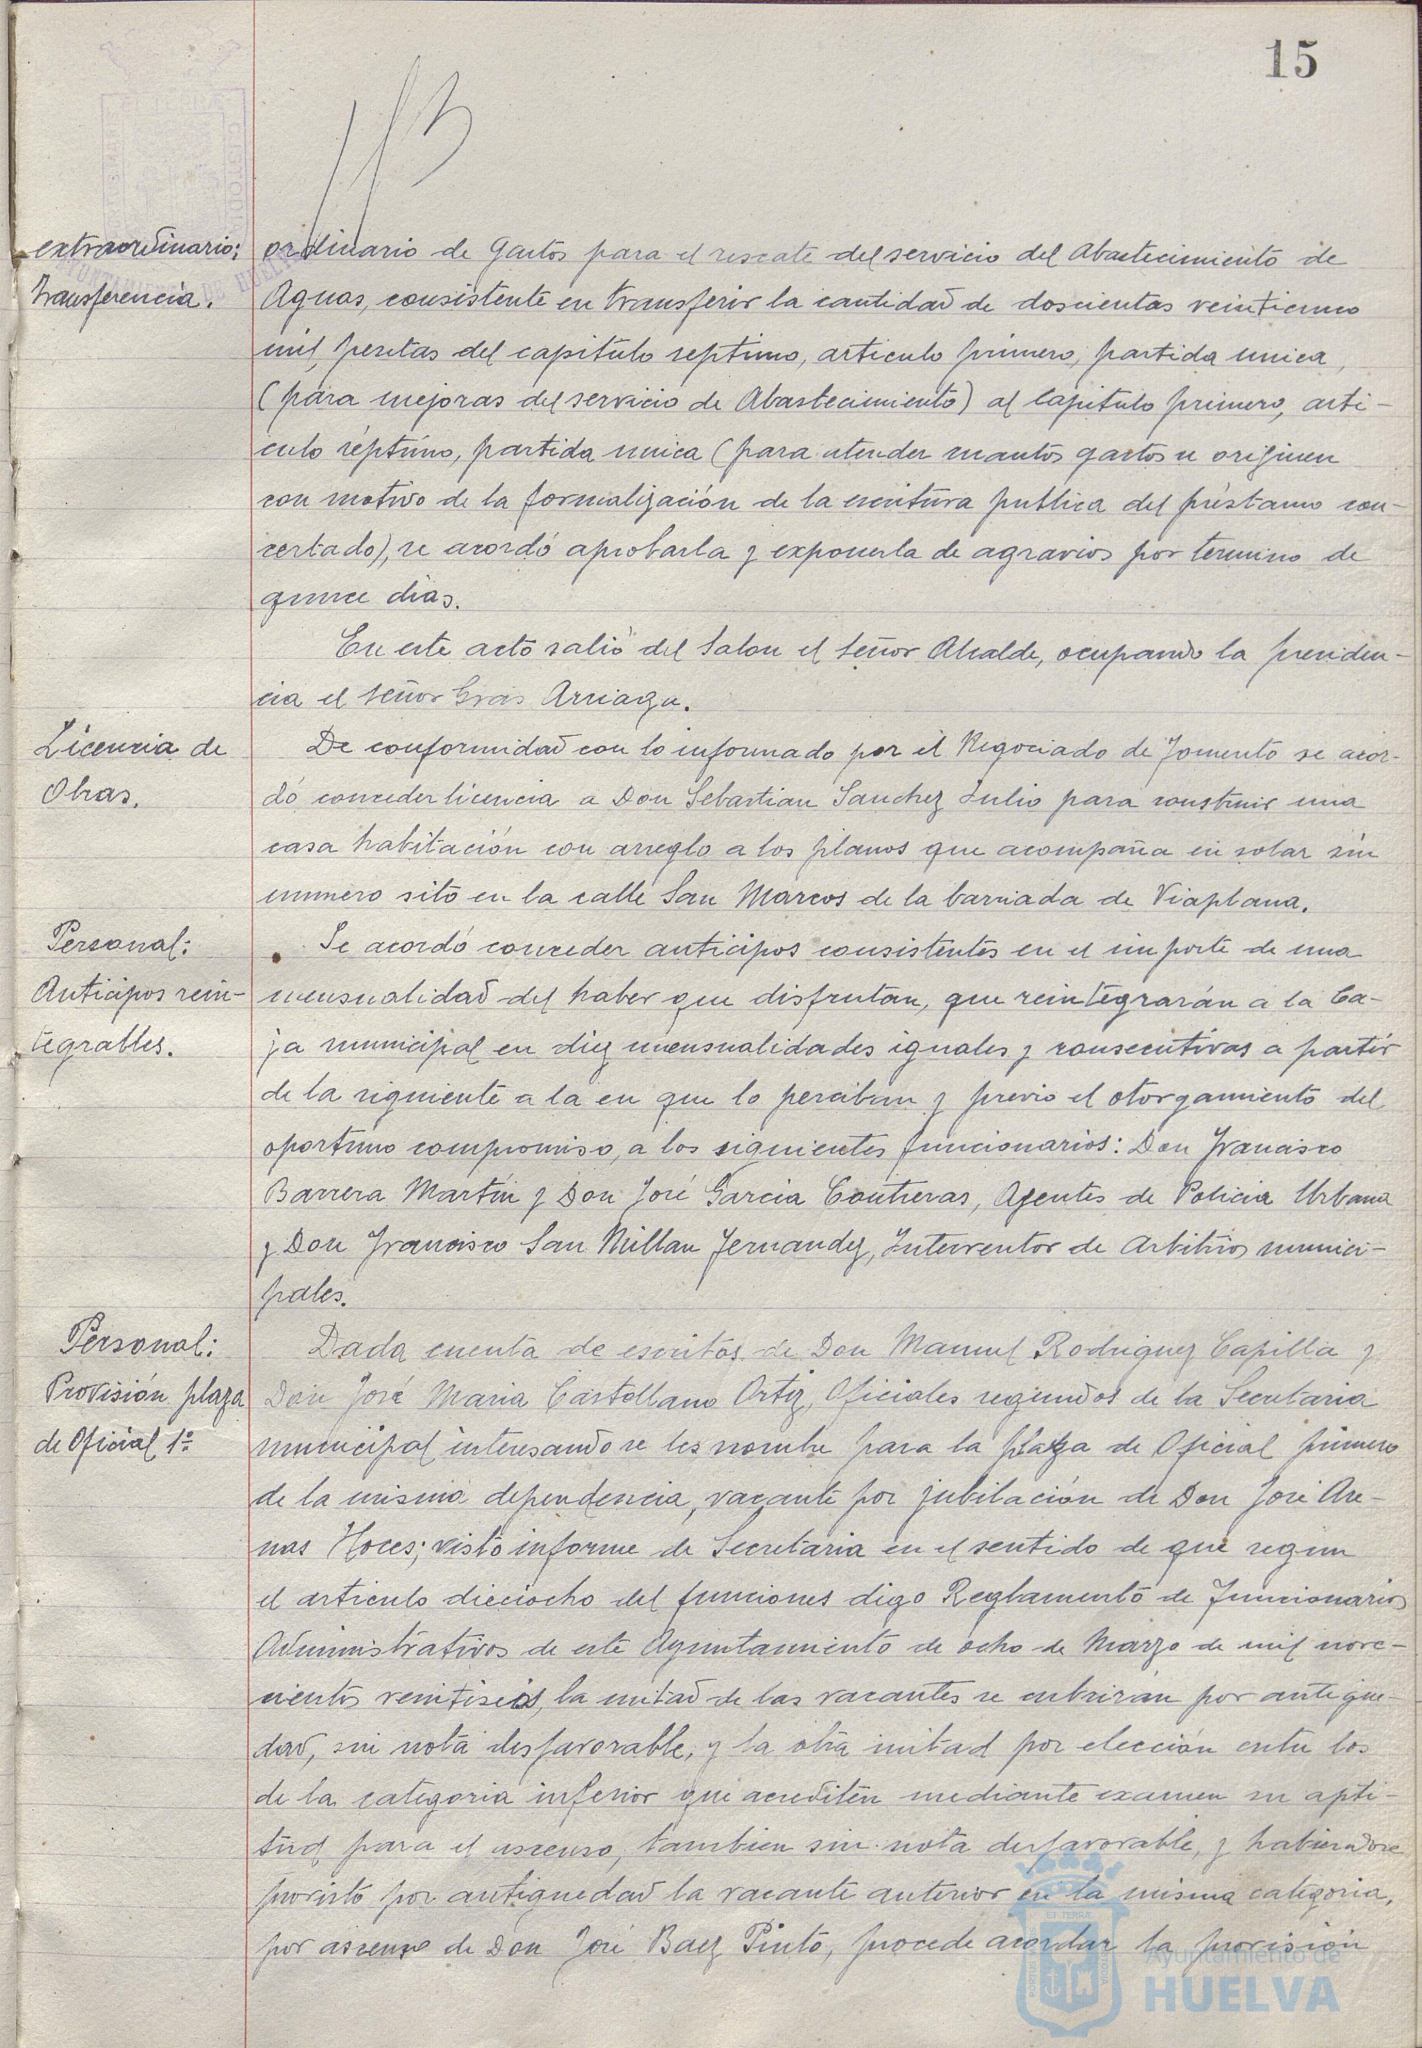 15
extraordinario:
transferencia.
ordinario de Gastos para el rescate del servicio del Abastecimiento de
Aguas, consistente en transferir la cantidad de doscientas veinticinco
mil pesetas del capitulo septimo, articulo primero, partida unica,
(para mejoras del servicio de Abastecimiento) al Capitulo primero, arti-
culo séptimo, partida unica (para atender cuantos gastos se originen
con motivo de la formalización de la escritura publica del préstamo con-
certado), se acordó aprobarla y exponerla de agravios por termino de
quince dias.
En este acto salió del Salon el Señor Alcalde, ocupando la presiden-
cia el Señor Gras Arriaga.
Licencia de
Obras.
De conformidad con lo informado por el Negociado de Fomento se acor-
dó conceder licencia a Don Sebastian Sanchez Julio para construir una
casa habitación con arreglo a los planos que acompaña en solar sin
numero sito en la calle San Marcos de la barriada de Viaplana.
Personal:
Anticipos rein-
tegrables.
Se acordó conceder anticipos consistentes en el importe de una
mensualidad del haber que disfrutan, que reintegrarán a la Ca-
ja municipal en diez mensualidades iguales y consecutivas a partir
de la siguiente a la en que lo perciban y previo el otorgamiento del
oportuno compromiso, a los siguientes funcionarios: Don Francisco
Barrera Martín y Don José Garcia Contreras, Agentes de Policia Urbana
y Don Francisco San Millan Fernandez, Interventor de Arbitrios munici-
pales.
Personal:
Provisión plaza
de Oficial 1º
Dada cuenta de escritos de Don Manuel Rodriguez Capilla y
Don José Maria Castellano Ortiz, Oficiales segundos de la Secretaria
municipal interesando se les nombre para la plaza de Oficial primero
de la misma dependencia, vacante por jubilación de Don José Are-
nas Hoces; visto informe de Secretaria en el sentido de que segun
el articulo dieciocho del funciones digo Reglamento de Funcionarios
Administrativos de este Ayuntamiento de ocho de Marzo de mil nove-
cientos veintiseis, la mitad de las vacantes se cubrirán por antigue-
dad, sin nota desfavorable, y la otra mitad por elección entre los
de la categoria inferior que acrediten mediante examen su apti-
tud para el ascenso, tambien sin nota desfavorable, y habiendose
provisto por antiguedad la vacante anterior en la misma categoria,
por ascenso de Don José Baez Pinto, procede acordar la provisión
Ayuntamiento de
HUELVA